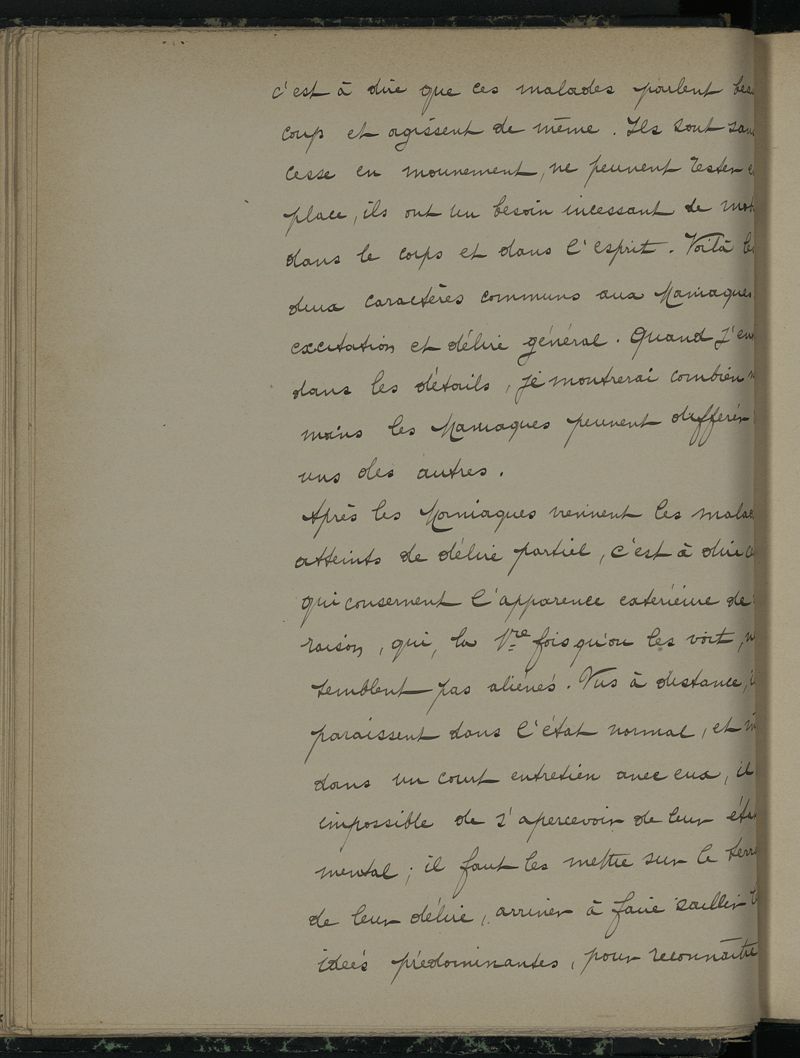 c'est à dire que ces malades parlent beau
coup et agissent de même. Ils sont sans
cesse en mouvement, ne peuvent rester e
place, ils ont un besoin incessant de mo
dans le corps et dans l'esprit. Voilà le
deux caractères communs aux Maniaques
excitation et délire général. Quand j'en
dans les détails, je montrerai combien n
moins les Maniaques peuvent différer
uns des autres.
Après les Maniaques viennent les mala
atteints de délire partiel, c'est à dire ce
qui conservent l'apparence extérieure de
raison, qui, la 1re fois qu'on les voit, n
semblent pas aliénés. Vus à distance, i
paraissent dans l'état normal, et m
dans un court entretien avec eux, il
impossible de s'apercevoir de leur éta
mental; il faut les mettre sur le terr
de leur délire, arriver à faire saillir l
idées prédominantes, pour reconnaître